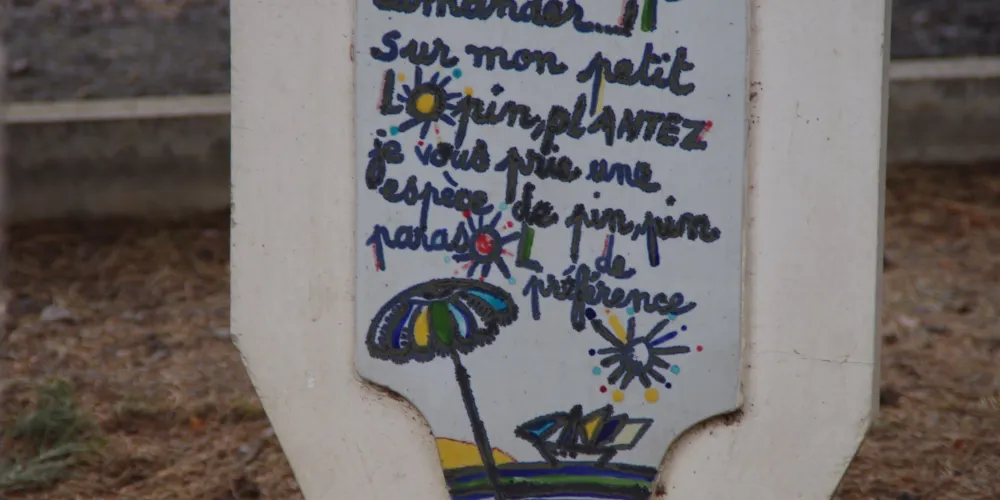 demander...
sur mon petit
LOpin, plANTEZ
je vous prie une
espèce de pin, pin
parasOL de
préférence